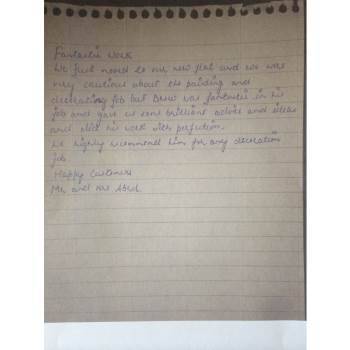 Fantastic Work
We just moved to our new flat and we were
very cautious about the painting and
decorating job but Drew was fantastic in his
job and gave us some brilliant advice and ideas
and did his work with perfection.
We highly recommend him for any decoration
job.
Happy Customers
Mr and Mrs